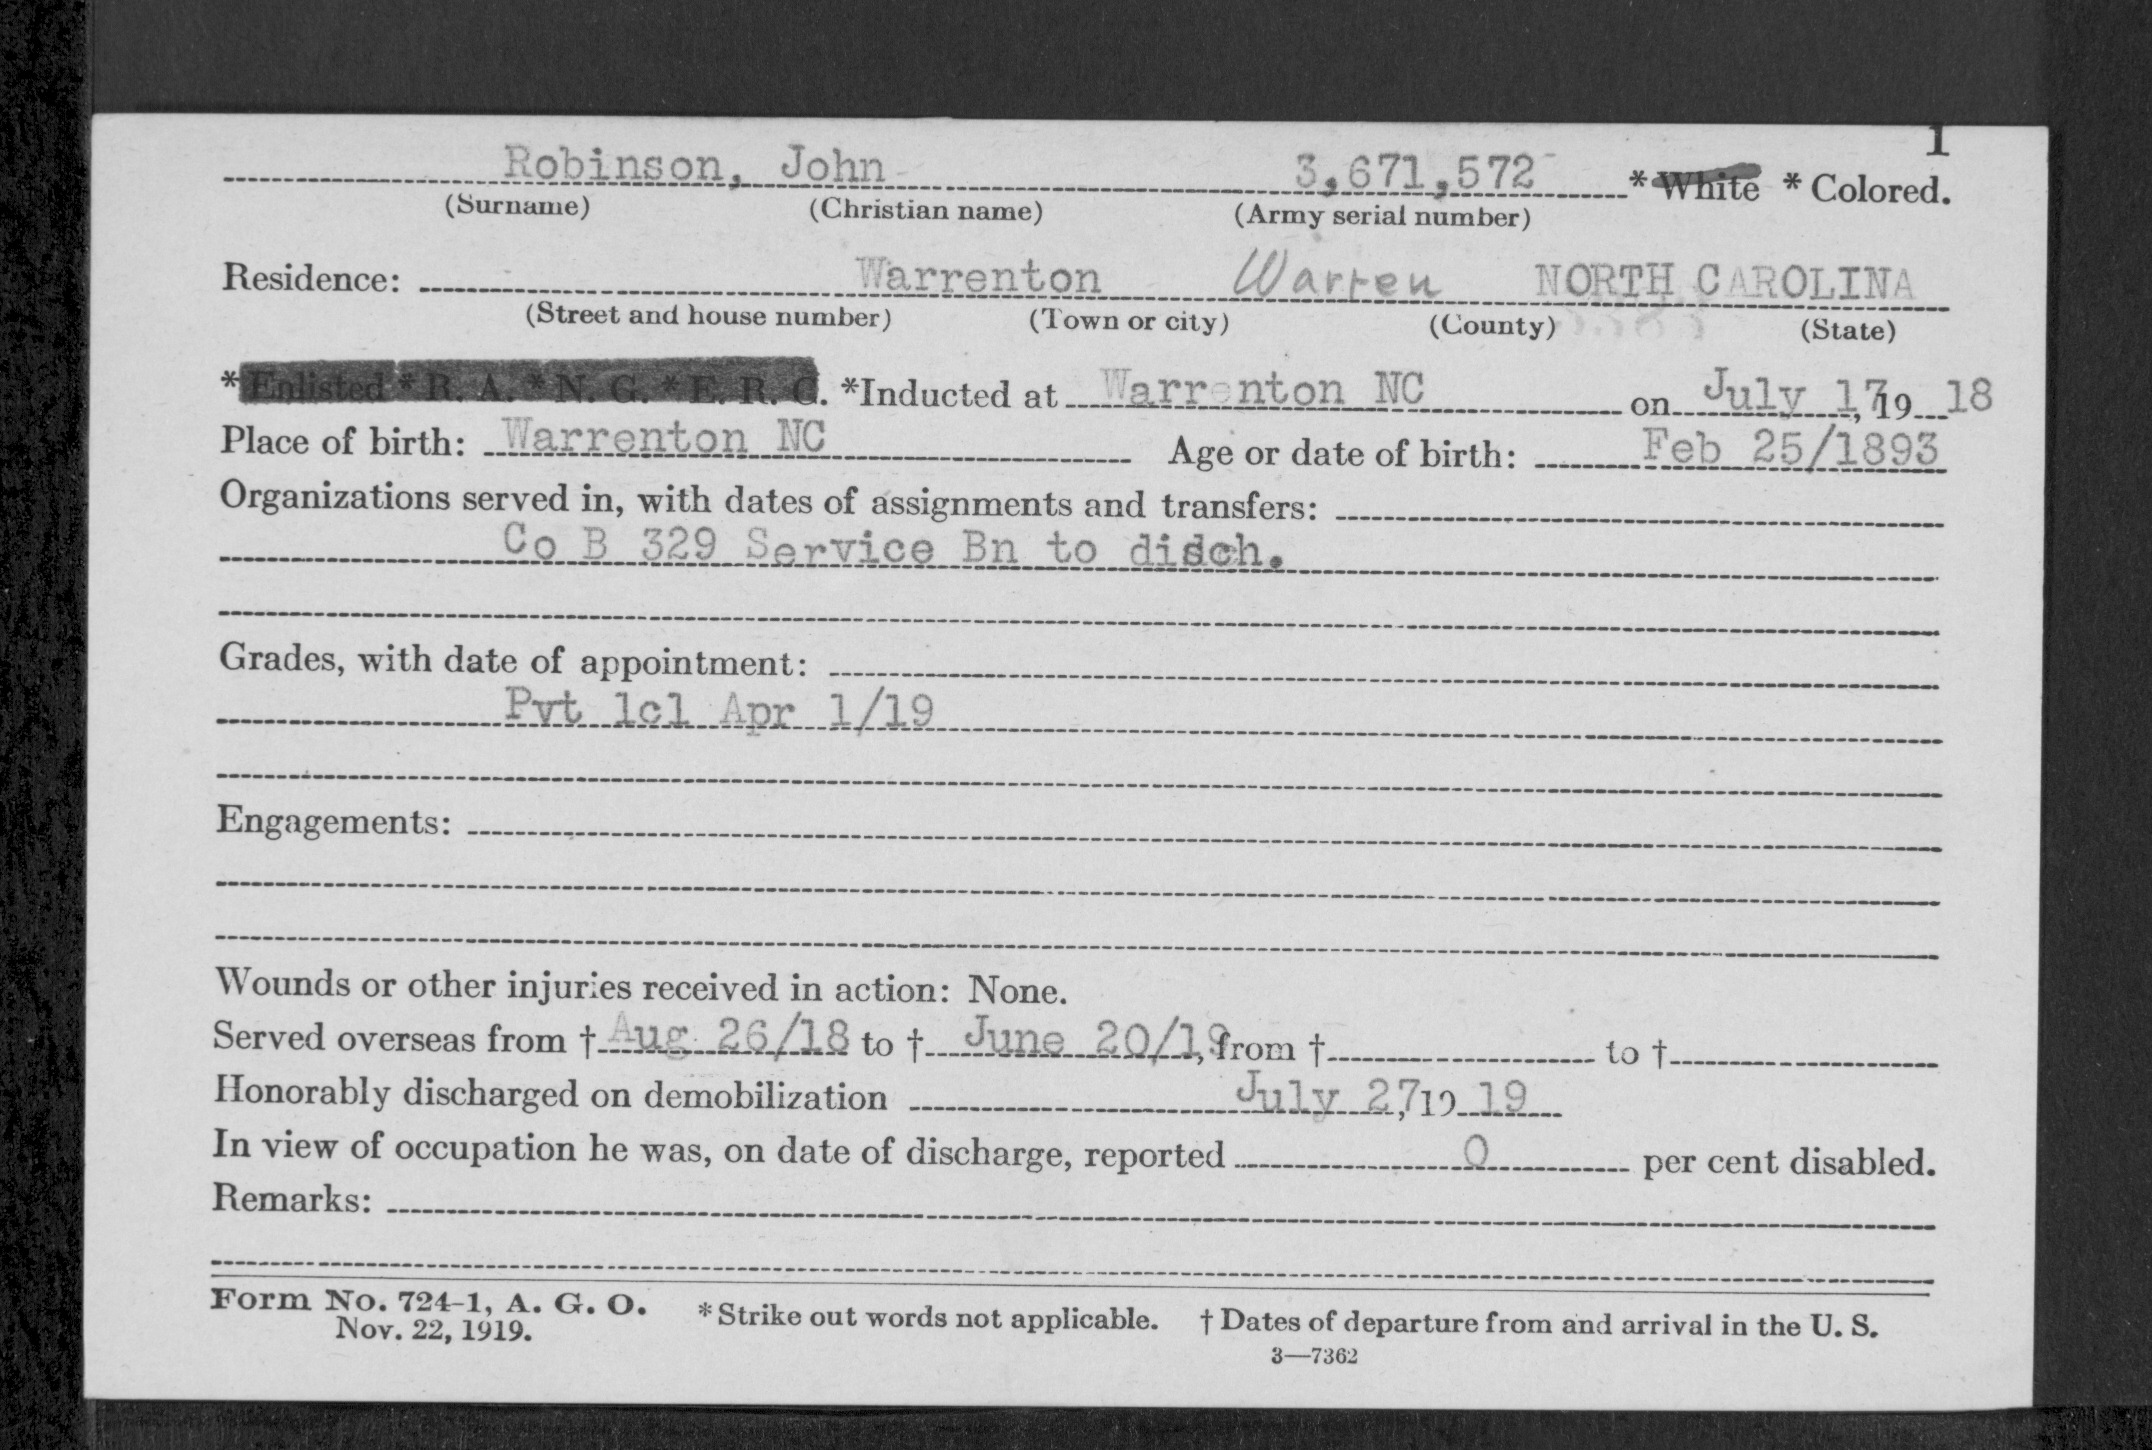 1
Robinson, John 3,671,572 * White * Colored.
(Surname) (Christian name) (Army serial number)
Residence: Warrenton Warren NORTH CAROLINA
(Street and house number) (Town or city) (County) (State)
*Enlisted *R. A. *N. G. *E. R. C. *Inducted at Warrenton NC on July 17, 19 18
Place of birth: Warrenton NC Age or date of birth: Feb 25/1893
Organizations served in, with dates of assignments and transfers:
Co B 329 Service Bn to disch.
Grades, with date of appointment:
Pvt 1cl Apr 1/19
Engagements:
Wounds or other injuries received in action: None.
Served overseas from † Aug 26/18 to † June 20/19, from † to †
Honorably discharged on demobilization July 27, 19 19
In view of occupation he was, on date of discharge, reported 0 per cent disabled.
Remarks:
Form No. 724-1, A. G. O. * Strike out words not applicable. † Dates of departure from and arrival in the U. S.
Nov. 22, 1919.
3—7362